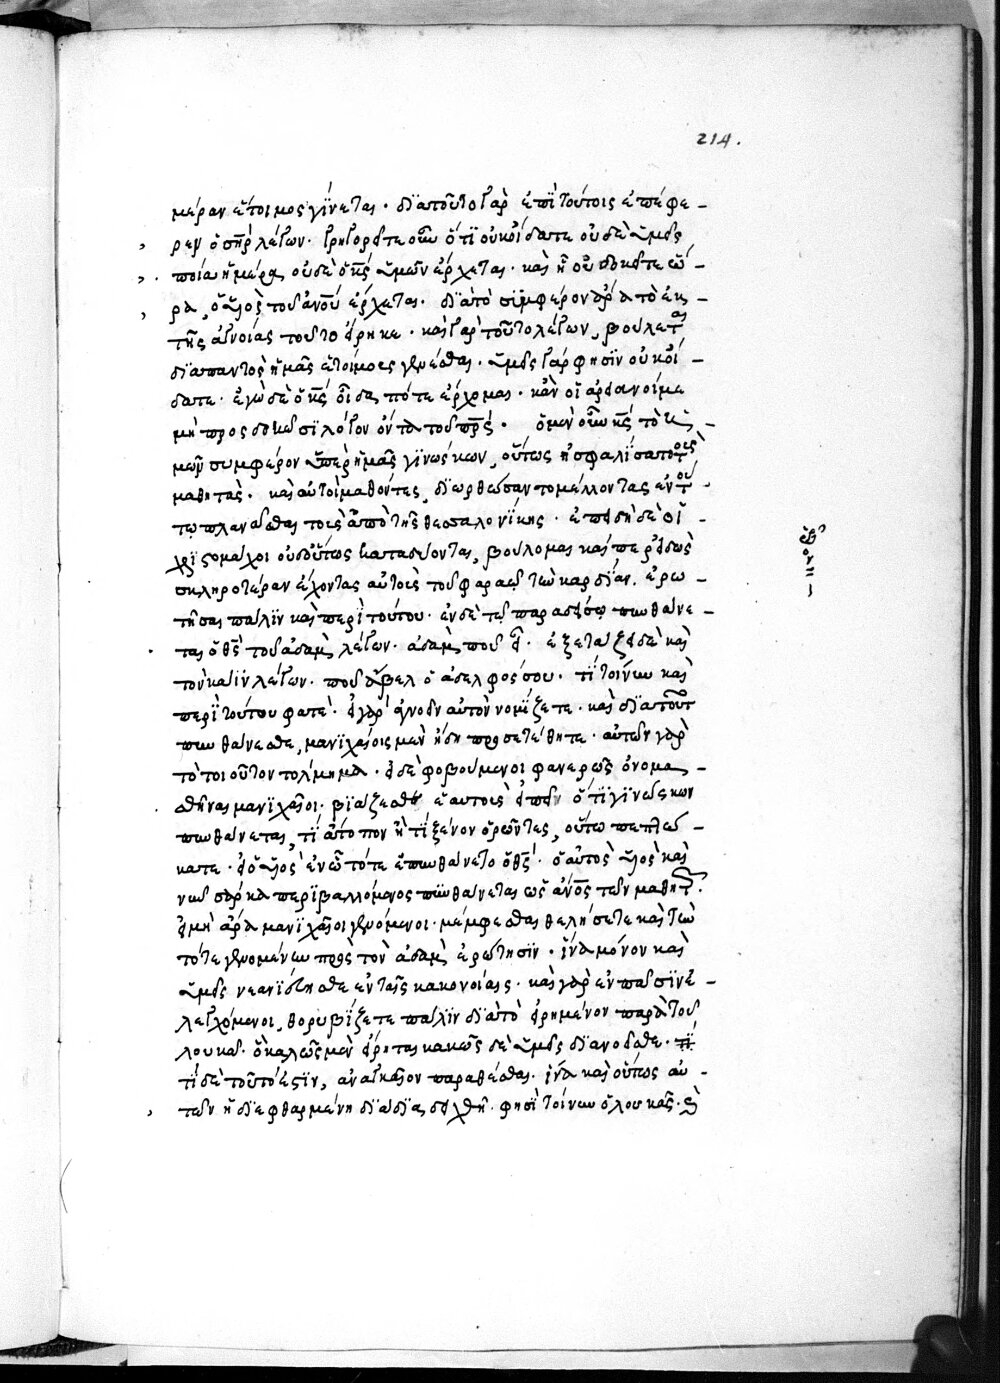 214.
μέραν ἕτοιμος γίνεται. διὰ τοῦτο γὰρ ἐπὶ τούτοις ἐπέφε-
ρεν ὁ σ̅η̅ρ̅ λέγων. γρηγορεῖτε οὖν ὅτι οὐκ οἴδατε οὐδὲ ὑμεῖς
ποία ἡμέρα, οὐδὲ ὁ κ̅ς̅ ὑμῶν ἔρχεται. καὶ ᾗ οὐ δοκεῖτε ὥ-
ρα, ὁ υἱὸς τοῦ ἀν̅ο̅υ̅ ἔρχεται. διὰ τὸ συμφέρον ἄρα τὸ ἐκ
τῆς ἀγνοίας τοῦτο εἴρηκε. καὶ γὰρ τοῦτο λέγων, βούλεται
διαπαντὸς ἡμᾶς ἑτοίμους γενέσθαι. ὑμεῖς γάρ φησιν οὐκ οἴ-
δατε. ἐγὼ δὲ ὁ κ̅ς̅ οἶδα πότε ἔρχομαι. κἂν οἱ ἀρειανοί με
μὴ προσδοκῶσι λόγον ὄντα τοῦ π̅ρ̅ς̅. ὁ μὲν οὖν κ̅ς̅ τὸ ὑ-
μῶν συμφέρον ὑπὲρ ἡμᾶς γινώσκων, οὕτως ἠσφαλίσατο τοὺς
μαθητάς. καὶ αὐτοὶ μαθόντες, διωρθώσαντο μέλλοντας ἐν τού-
τῳ πλανᾶσθαι τοὺς ἀπὸ τῆς θεσσαλονίκης. ἐπειδὴ δὲ οἱ
χριστομάχοι οὐδ' οὕτως καταδύονται, βούλομαι καίπερ εἰδὼς
σκληροτέραν ἔχοντας αὐτοὺς τοῦ φαραὼ τὴν καρδίαν. ἐρω-
τῆσαι πάλιν καὶ περὶ τούτου. ἐν δὲ τῷ παραδείσῳ πυνθάνε-
ται ὁ θ̅ς̅ τοῦ ἀδὰμ λέγων. ἀδὰμ ποῦ εἶ. ἐξετάζει δὲ καὶ
τὸν κάϊν λέγων. ποῦ ἄβελ ὁ ἀδελφός σου. τί τοίνυν καὶ
περὶ τούτου φατέ. εἰ γὰρ ἀγνοεῖν αὐτὸν νομίζετε. καὶ διὰ τοῦτο
πυνθάνεσθαι, μανιχαίοις μὲν ἤδη προσετέθητε. αὐτῶν γὰρ
τὸ τοιοῦτον τόλμημα. εἰ δὲ φοβούμενοι φανερῶς ὀνομα-
σθῆναι μανιχαῖοι. βιάζεσθε ἑαυτοὺς εἰπεῖν ὅτι γινώσκων
πυνθάνεται, τί ἄτοπον ἢ τί ξένον ὁρῶντες, οὕτω πεπτώ-
κατε. εἰ ὁ υἱὸς ἐν ᾧ τότε ἐπυνθάνετο ὁ θ̅ς̅. ὁ αὐτὸς υἱὸς καὶ
νῦν σάρκα περιβαλλόμενος πυνθάνεται ὡς ἄν̅ο̅ς̅ τῶν μαθητ.
εἰ μὴ ἄρα μανιχαῖοι γενόμενοι. μέμφεσθαι θελήσετε καὶ τὴν
τότε γενομένην πρὸς τὸν ἀδὰμ ἐρώτησιν. ἵνα μόνον καὶ
ὑμεῖς νεανιεύησθε ἐν ταῖς κακονοίαις. καὶ γὰρ ἐν πᾶσιν ἐ-
λεγχόμενοι, θορυβίζετε πάλιν διὰ τὸ εἰρημένον παρὰ τοῦ
λουκᾶ. ὃ καλῶς μὲν εἴρηται κακῶς δὲ ὑμεῖς διανοεῖσθε. τί
τί δὲ τοῦτό ἐστιν, ἀναγκαῖον παραθέσθαι. ἵνα καὶ οὕτως αὐ-
τῶν ἡ διεφθαρμένη διάνοια δειχθῇ. φησὶ τοίνυν ὁ λουκᾶς. καὶ